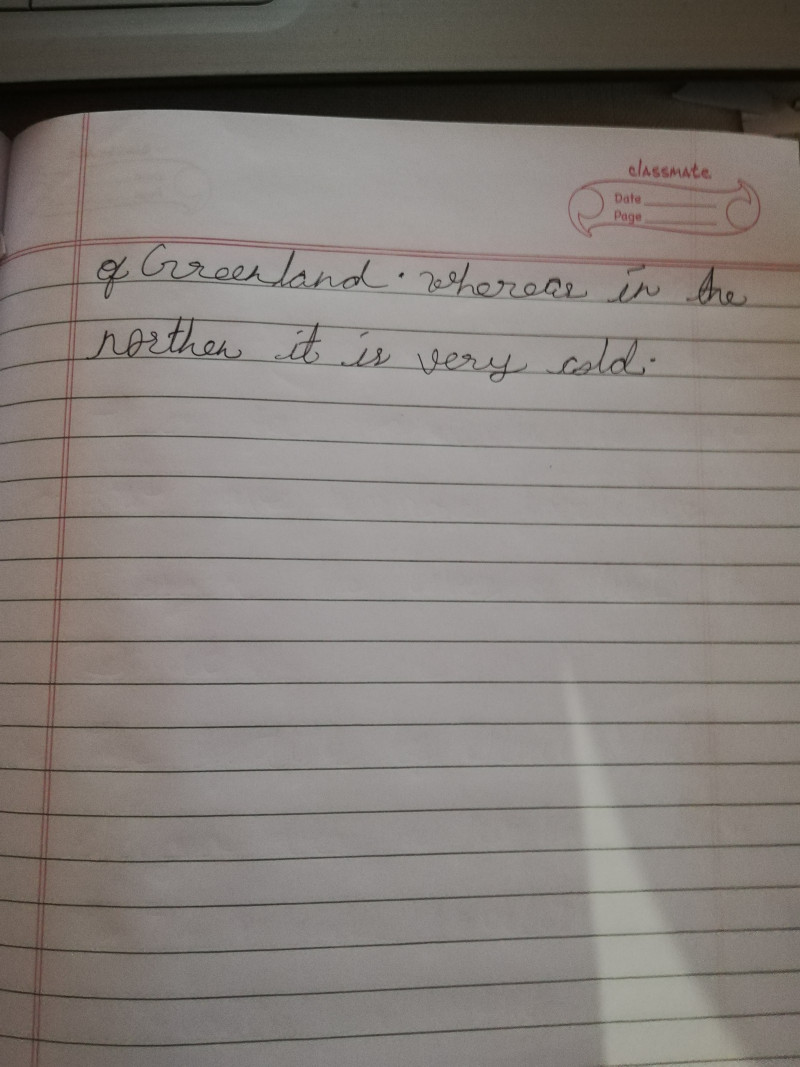 classmate
Date
Page
of Greenland. whereas in the
northen it is very cold.